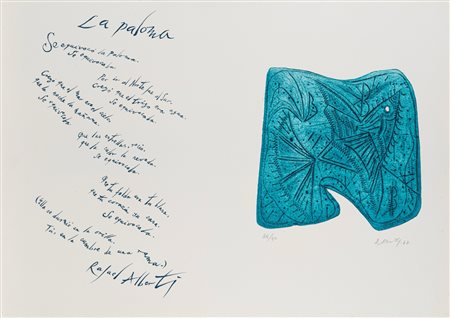 La paloma
Se equivocó la paloma.
Se equivocaba.
Por ir al Norte, fue al Sur.
Creyó que el trigo era agua.
Se equivocaba.
Creyó que el mar era el cielo;
que la noche, la mañana.
Se equivocaba.
Que las estrellas, rocío;
que la calor, la nevada.
Se equivocaba.
Que tu falda era tu blusa;
que tu corazón, su casa.
Se equivocaba.
(Ella se durmió en la orilla.
Tú, en la cumbre de una rama.)
Rafael Alberti